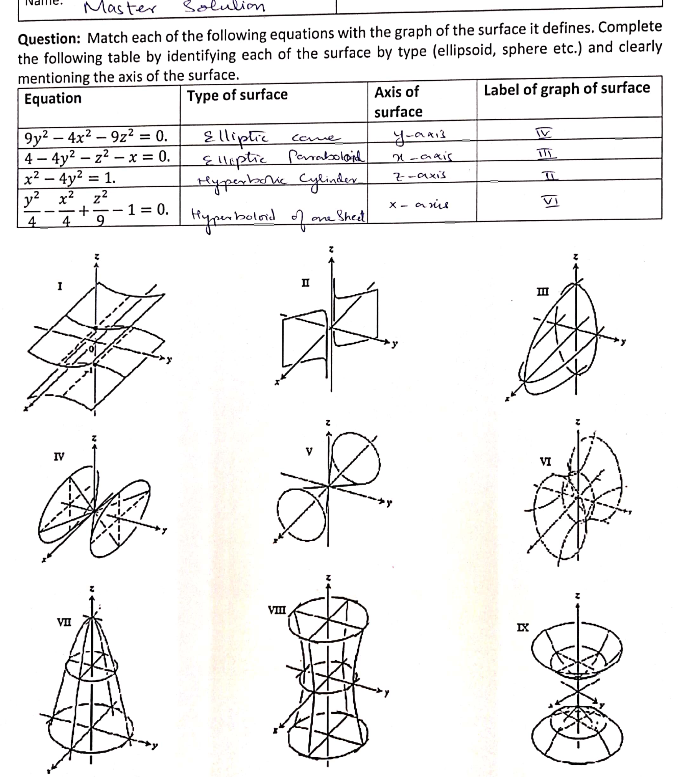 Name: Master Solution
Question: Match each of the following equations with the graph of the surface it defines. Complete
the following table by identifying each of the surface by type (ellipsoid, sphere etc.) and clearly
mentioning the axis of the surface.
Equation Type of surface Axis of surface Label of graph of surface
9y² − 4x² − 9z² = 0. Elliptic cone y-axis IV
4 − 4y² − z² − x = 0. Elliptic Parraboloid x-axis III
x² − 4y² = 1. Hyperbolic Cylinder z-axis II
y²/4 − x²/4 + z²/9 − 1 = 0. Hyperboloid of one Sheet x-axis VI
I z y x 0
II z y x
III z y x
IV z y x
V z y x
VI z y x
VII z y x
VIII z y x
IX z y x